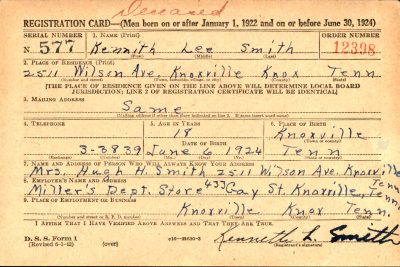 Deceased
REGISTRATION CARD—(Men born on or after January 1, 1922 and on or before June 30, 1924)
SERIAL NUMBER 1. NAME (Print) ORDER NUMBER
N 577 Kennith Lee Smith 12398
(First) (Middle) (Last)
2. PLACE OF RESIDENCE (Print)
2511 Wilson Ave. Knoxville Knox Tenn
(Number and street) (Town, township, village, or city) (County) (State)
[THE PLACE OF RESIDENCE GIVEN ON THE LINE ABOVE WILL DETERMINE LOCAL BOARD
JURISDICTION; LINE 2 OF REGISTRATION CERTIFICATE WILL BE IDENTICAL]
3. MAILING ADDRESS
Same
(Mailing address if other than place indicated on line 2. If same insert word same)
4. TELEPHONE 5. AGE IN YEARS 6. PLACE OF BIRTH
18 Knoxville
DATE OF BIRTH (Town or county)
3-3839 June 6 1924 Tenn
(Mo.) (Day) (Yr.) (State or country)
7. NAME AND ADDRESS OF PERSON WHO WILL ALWAYS KNOW YOUR ADDRESS
Mrs. Hugh H. Smith 2511 Wilson Ave. Knoxville Tenn
8. EMPLOYER'S NAME AND ADDRESS
Miller's Dept. Store 433 Gay St. Knoxville, Tenn
9. PLACE OF EMPLOYMENT OR BUSINESS
Knoxville Knox Tenn.
(Number and street or R. F. D. number) (Town) (County) (State)
I AFFIRM THAT I HAVE VERIFIED ABOVE ANSWERS AND THAT THEY ARE TRUE.
D. S. S. Form 1
(Revised 6-1-42) (over) Kenneth L. Smith
(Registrant's signature)